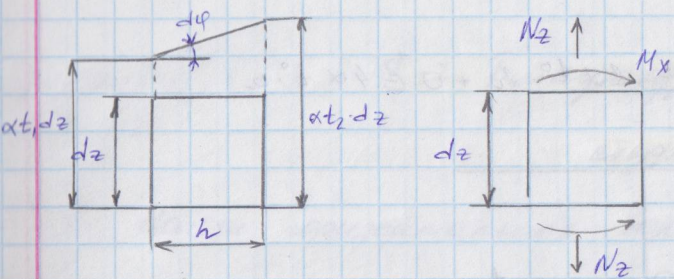 dφ
αt₁dz
dz
αt₂·dz
h
Nz
Mx
dz
Nz